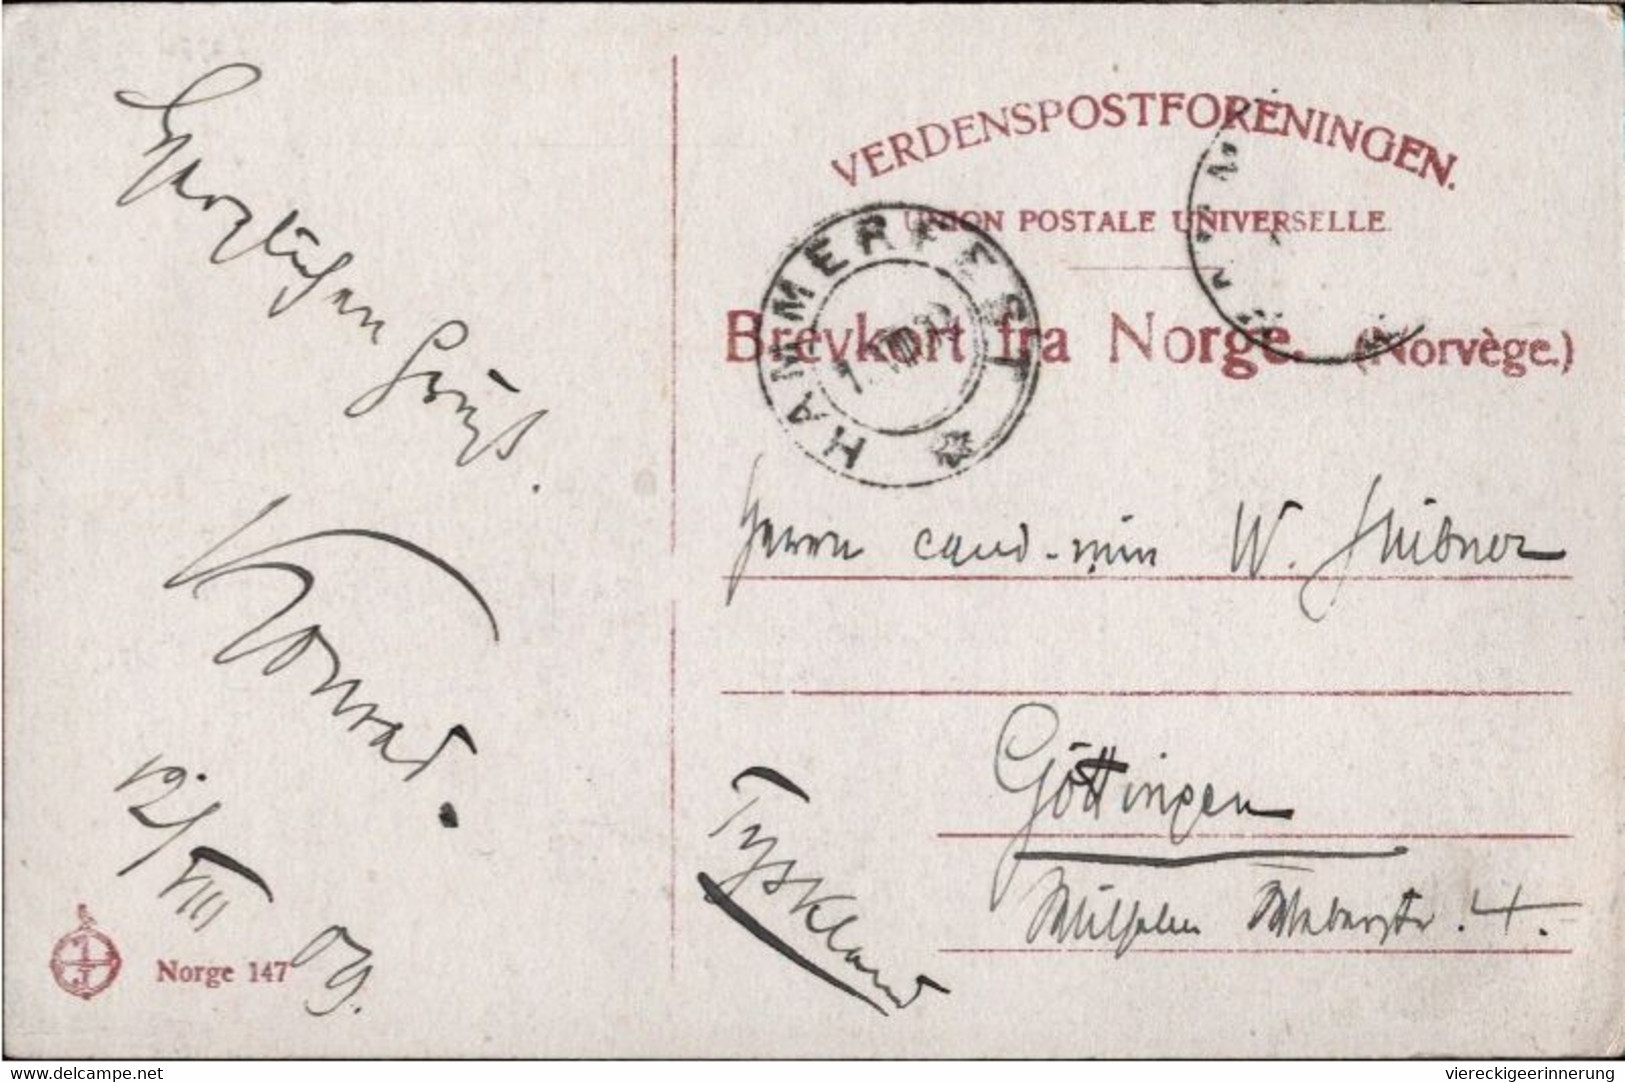 Herzlichen
Gruß.
Konrad.
12/VIII 09.
Norge 147
VERDENSPOSTFORENINGEN.
UNION POSTALE UNIVERSELLE.
Brevkort fra Norge. (Norvège.)
HAMMERFEST
Herrn cand. min W. Hübner
Göttingen
Wilhelm Weberstr. 4.
Tyskland
delcampe.net
viereckigeerinnerung